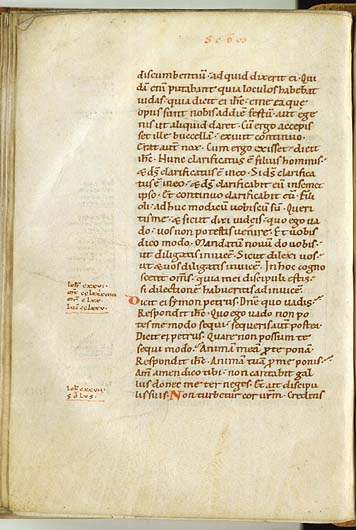 discumbentiū· ad quid dixerit ei· Qui
dā enī putabant quia loculos habebat
iudas· quia dicit ei ihc̄· eme ea que
opus sunt nobis ad diem festū· aut ege
nis ut aliquid daret· Cū ergo accepis
set ille buccellā· exiuit continuo·
Erat aut̄ nox· Cum ergo exisset· dicit
ihc̄· Hunc clarificatus ē filius hominis·
& ds̄ clarificatus ē in eo· Si ds̄ clarifica
tus ē in eo· & ds̄ clarificabit eū in semet
ipso· Et continuo clarificabit eū· Fili
oli· adhuc modicū uobiscū sū· Queri
tis me· & sicut dixi iudeis· quo ego ua
do· uos non potestis uenire· Et uobis
dico modo· Mandatū nouū do uobis·
ut diligatis inuicē· Sicut dilexi uos·
ut & uos diligatis inuicē· In hoc cogno
scent om̄s· quia mei discipuli estis·
si dilectionē habueritis ad inuicē·
Dicit ei symon petrus· Dn̄e quo uadis·
Respondit ihc̄· Quo ego uado non po
tes me modo sequi· sequeris aut̄ postea·
Dicit ei petrus· Quare non possum te
sequi modo· Animā meā p te ponā·
Respondit ihc̄· Animā tuā p me ponis·
Am̄ amen dico tibi· non cantabit gal
lus donec me ter neges· Et ait discipu
lis suis· Non turbetur cor ur̄m· Creditis